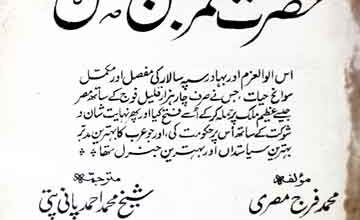 حضرت عمرو بن
اس اولوالعزم اور بہادر سپہ سالار کی مفصل اور مکمل
سوانح حیات، جس نے صرف چار ہزار قلیل فوج کے ساتھ مصر
جیسے عظیم ملک پر حملہ کر کے اُسے فتح کیا اور پھر نہایت شان و
شوکت کے ساتھ اس پر حکومت کی، اور جو عرب کا بہترین مدبر
بہترین سیاستداں اور بہترین جنرل تھا
مؤلفہ
مترجمہ
محمد فرج مصری
شیخ محمد احمد پانی پتی